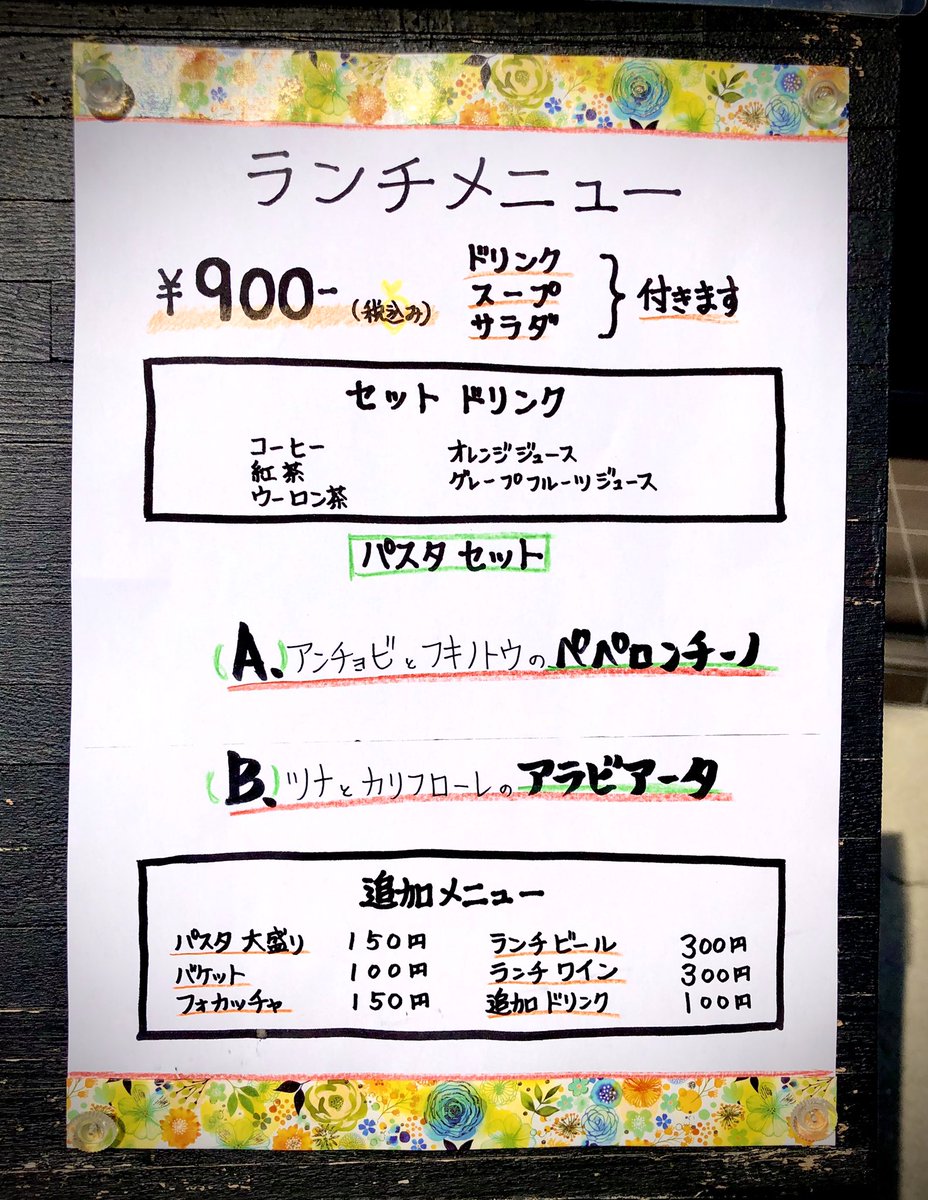 ランチメニュー
¥900-(税込み)
ドリンク
スープ
サラダ
付きます
セット ドリンク
コーヒー
紅茶
ウーロン茶
オレンジジュース
グレープフルーツジュース
パスタ セット
(A.)アンチョビとフキノトウのペペロンチーノ
(B.)ツナとカリフローレのアラビアータ
追加メニュー
パスタ 大盛り 150円
バケット 100円
フォカッチャ 150円
ランチビール 300円
ランチワイン 300円
追加ドリンク 100円